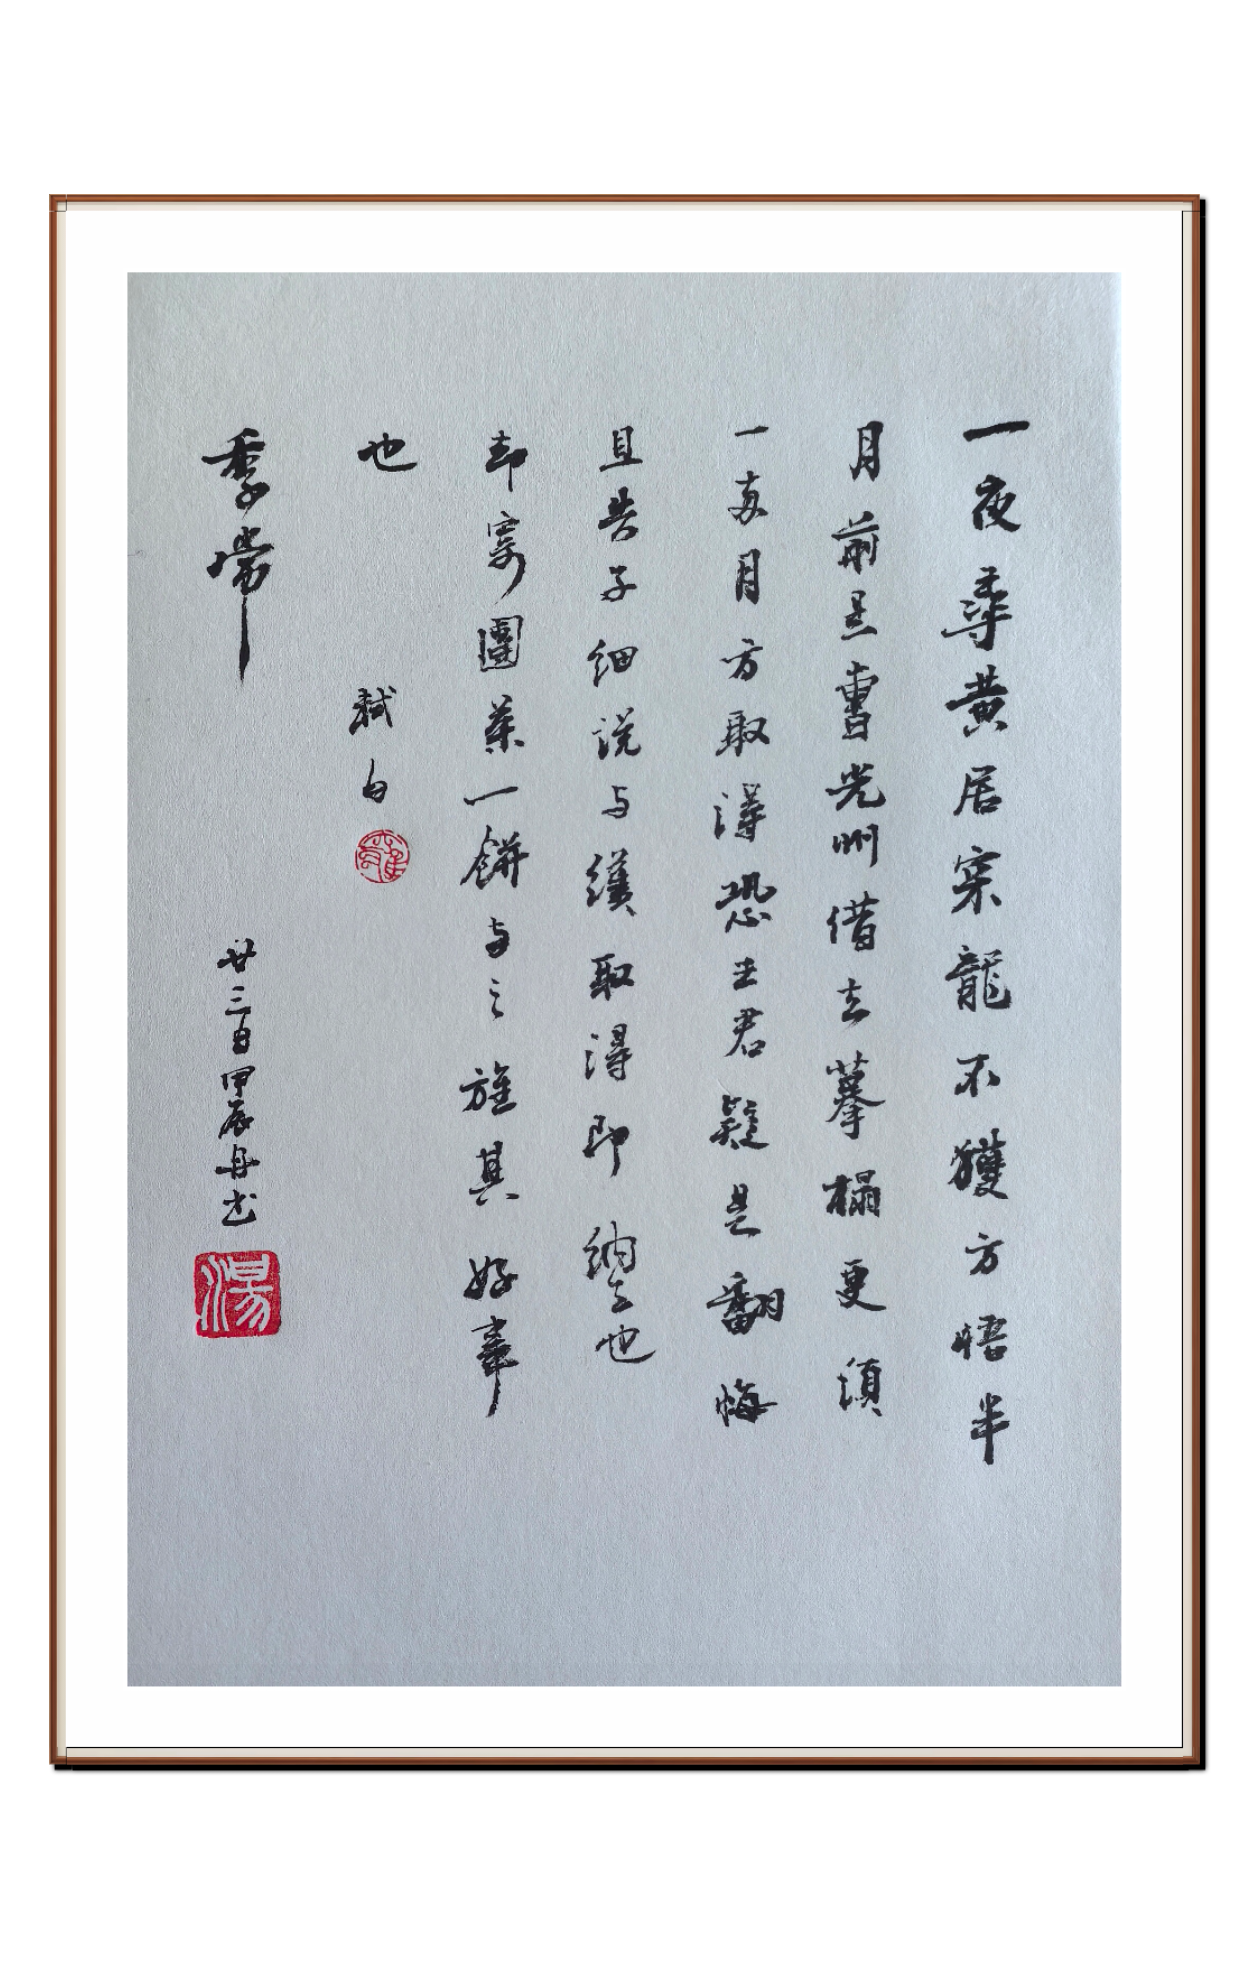 一夜尋黃居寀龍不獲方悟半
月前是曹光州借去摹搨更須
一兩月方取得恐王君疑是翻悔
且告子細說与纔取得即納去也
却寄團茶一餅与之旌其好事
也 軾白
季常 廿三日甲辰丹书
湯